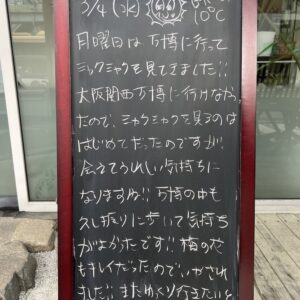 3/4 (水) 10℃
月曜日は万博に行って
ミャクミャクを見てきました!!
大阪関西万博に行けなかっ
たので、ミャクミャクを見るのは
はじめてだったのですが!!
会えてうれしい気持ちに
なりますね!! 万博の中も
久し振りに歩いて気持ち
がよかったです!! 梅の花
もキレイだったので、いやされ
ました!! またゆっくり行きたいな